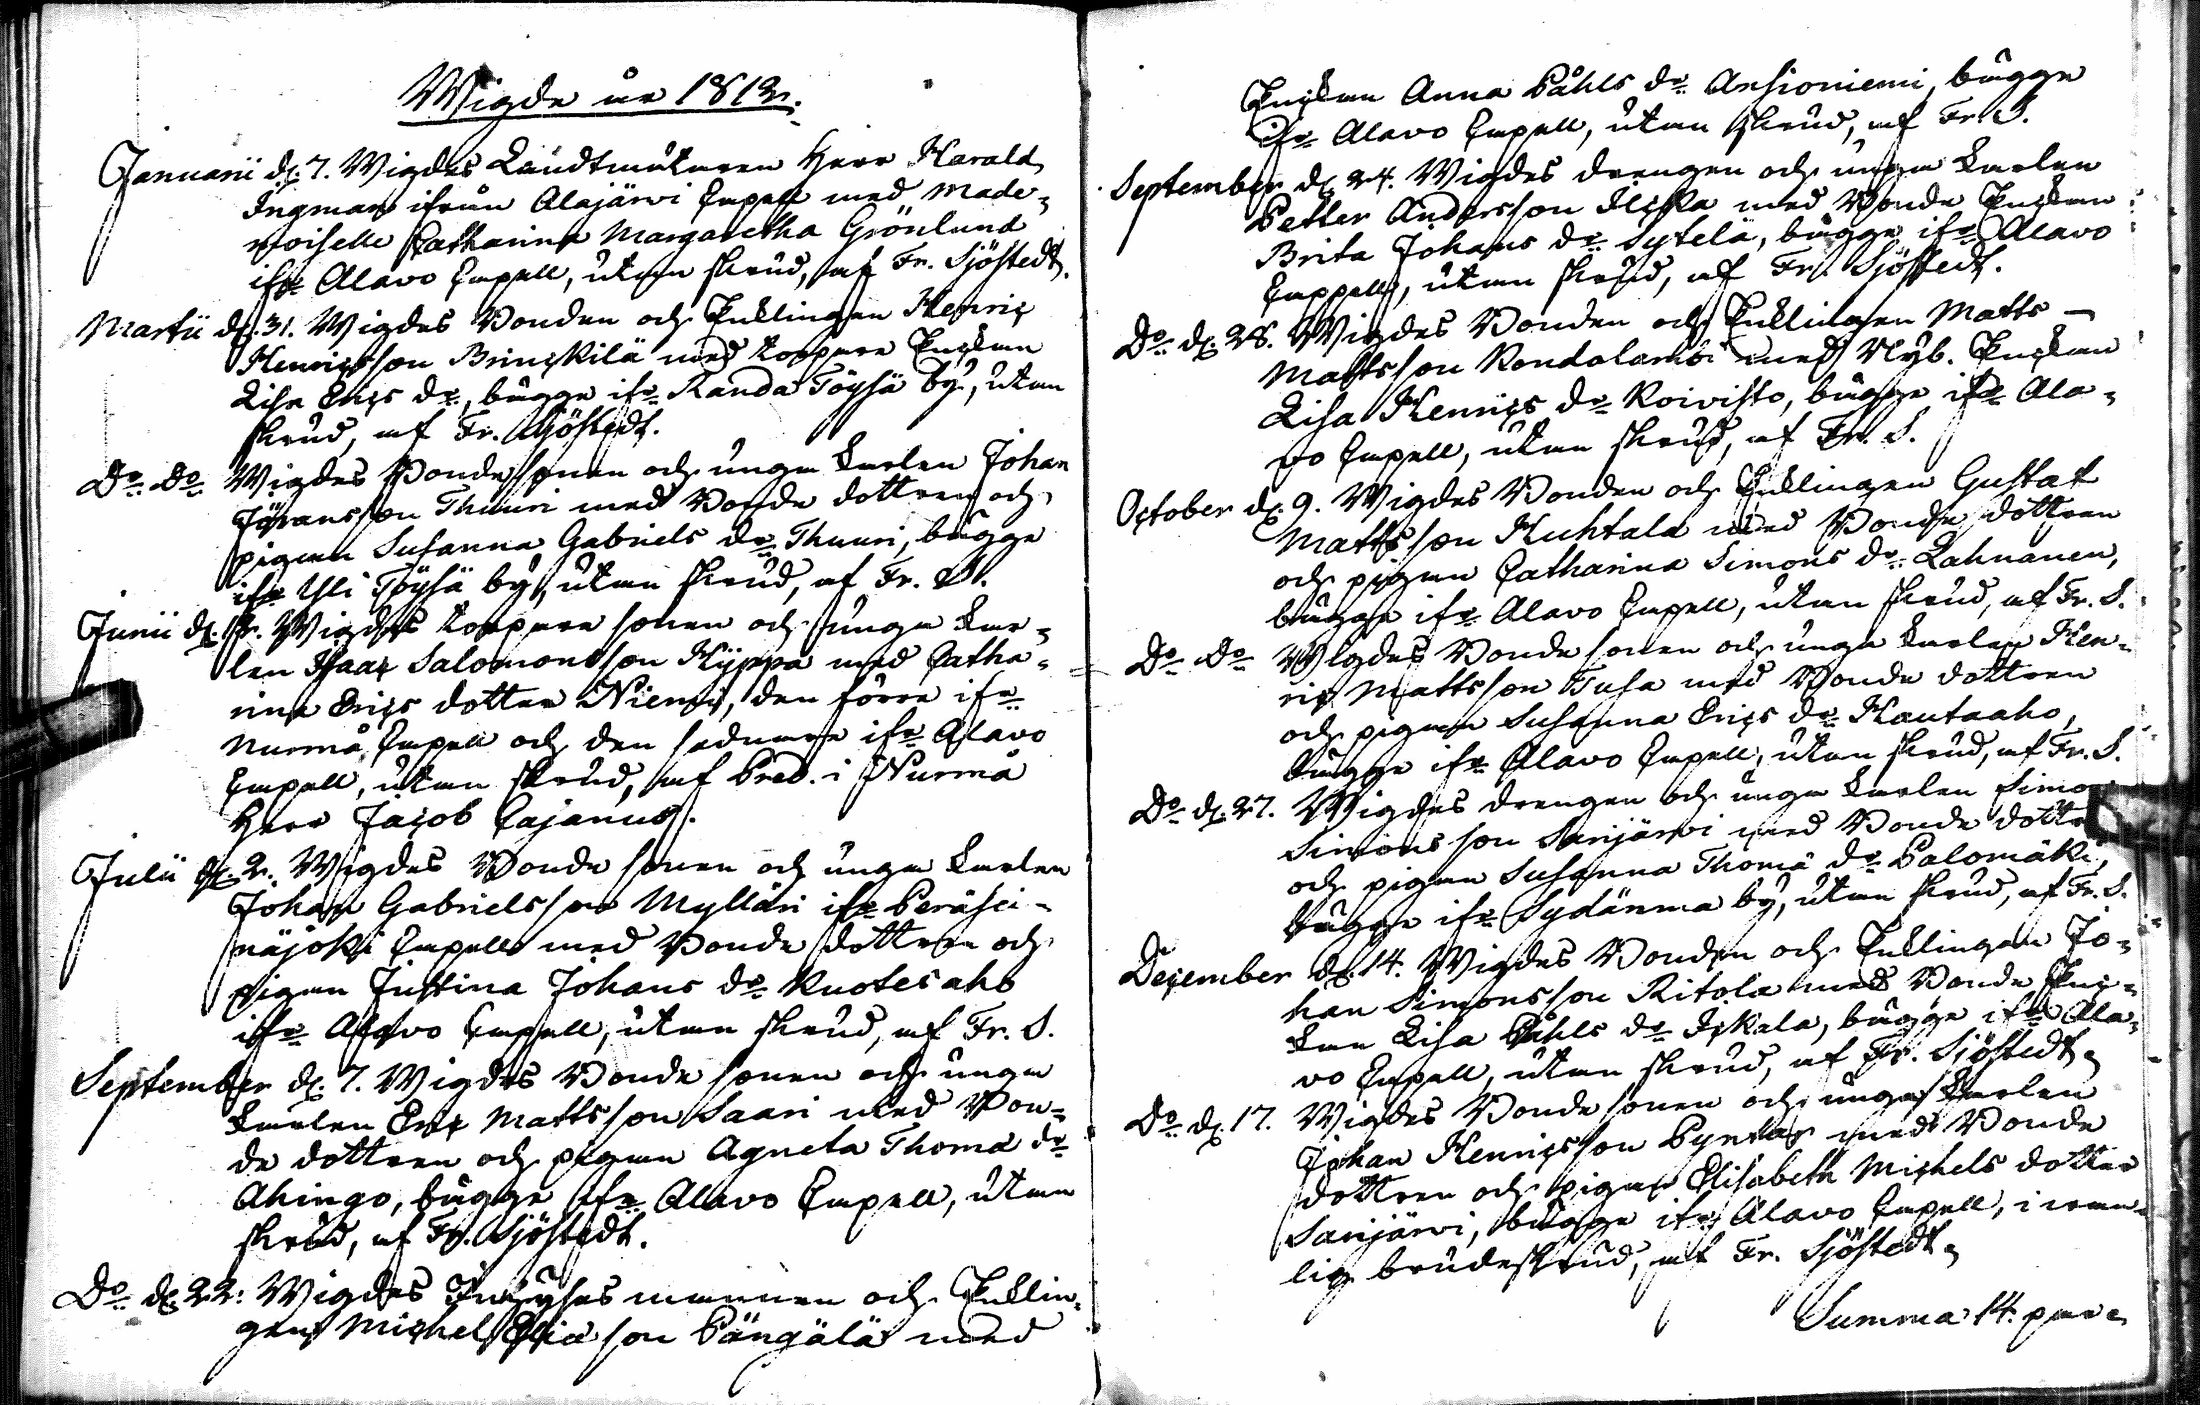 Wigde år 1812.
Januarii d. 7. Wigdes Landtmätaren Herr Harald
Ingman ifrån Alajärwi Capell med Made-
moiselle Catharina Margaretha Grönlund
ifr. Alavo Capell, utan skrud, af Fr. Sjöstedt.
Martii d. 31. Wigdes Bonden och Enklingen Henric
Henricsson Brinckilä med torpare Enckan
Lisa Erics dr., bägge ifr. Randa Töysä by, utan
skrud, af Fr. Sjöstedt.
Do. Do. Wigdes Bonde sonen och unga Karlen Johan
Jöransson Thuuri med Bonde dottren och
pigan Susanna Gabriels dr. Thuuri, bägge
ifr. Yli Töysä by, utan skrud, af Fr. S.
Junii d. Wigdes torpare sonen och unga Kar-
len Isaac Salomonsson Hyppä med Catha-
rina Erics dotter Niemi, den förre ifr.
Nurmå Capell och den sednare ifr. Alavo
Capell, utan skrud, af Pred. i Nurmå
Herr Jacob Cajanus.
Julii d. 2. Wigdes Bonde sonen och unga Karlen
Johan Gabrielsson Mylläri ifr. Peräsei-
näjoki Capell med Bonde dottren och
pigan Justina Johans dr. Kuotesaho
ifr. Alavo Capell, utan skrud, af Fr. S.
September d. 7. Wigdes Bonde sonen och unga
Karlen Eric Mattsson Saari med Bon-
de dottren och pigan Agneta Thoma dr.
Ahingo, bägge ifr. Alavo Capell, utan
skrud, af Fr. Sjöstedt.
Do. d. 22. Wigdes Inhyses mannen och Enklin-
gen Michel Eliasson Pängälä med
Enckan Anna Påhls dr. Ansioniemi, bägge
ifr. Alavo Capell, utan skrud, af Fr. S.
September d. 24. Wigdes drengen och unga Karlen
Petter Andersson Ilcka med Bonde Enckan
Brita Johans dr. Sytelä, bägge ifr. Alavo
Cappell, utan skrud, af Fr. Sjöstedt.
Do. d. 28. Wigdes Bonden och Enklingen Matts
Mattsson Kondolambi med Nyb. Enckan
Lisa Henrics dr. Koivisto, bägge ifr. Ala-
vo Capell, utan skrud, af Fr. S.
October d. 9. Wigdes Bonden och Enklingen Gustaf
Mattsson Huhtala med Bonde dottren
och pigan Catharina Simons dr. Lahnanen,
bägge ifr. Alavo Capell, utan skrud, af Fr. S.
Do. Do. Wigdes Bonde sonen och unga Karlen Hen-
ric Mattsson Tusa med Bonde dottren
och pigan Susanna Erics dr. Hautaaho,
bägge ifr. Alavo Capell, utan skrud, af Fr. S.
Do. d. 27. Wigdes drengen och unga Karlen Simo
Simonsson Sarijärwi med Bonde dott
och pigan Susanna Thoma dr. Palomäki,
bägge ifr. Sydänma by, utan skrud, af Fr. S.
December d. 14. Wigdes Bonden och Enklingen Jo-
han Simonsson Ritola med Bonde Enc-
kan Lisa Påhls dr. Ickala, bägge ifr. Ala-
vo Capell, utan skrud, af Fr. Sjöstedt.
Do. d. 17. Wigdes Bonde sonen och unga Karlen
Johan Henricsson med Bonde
dottren och pigan Elisabeth Michels dotter
Sarijärwi, bägge ifr. Alavo Capell, i
lig brudeskrud, af Fr. Sjöstedt.
Summa 14. par.